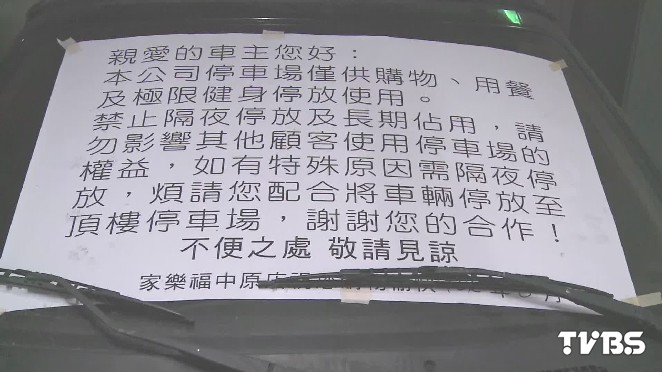 親愛的車主您好：
本公司停車場僅供購物、用餐
及極限健身停放使用。
禁止隔夜停放及長期佔用，請
勿影響其他顧客使用停車場的
權益，如有特殊原因需隔夜停
放，煩請您配合將車輛停放至
頂樓停車場，謝謝您的合作！
不便之處 敬請見諒
家樂福中原店
TVBS